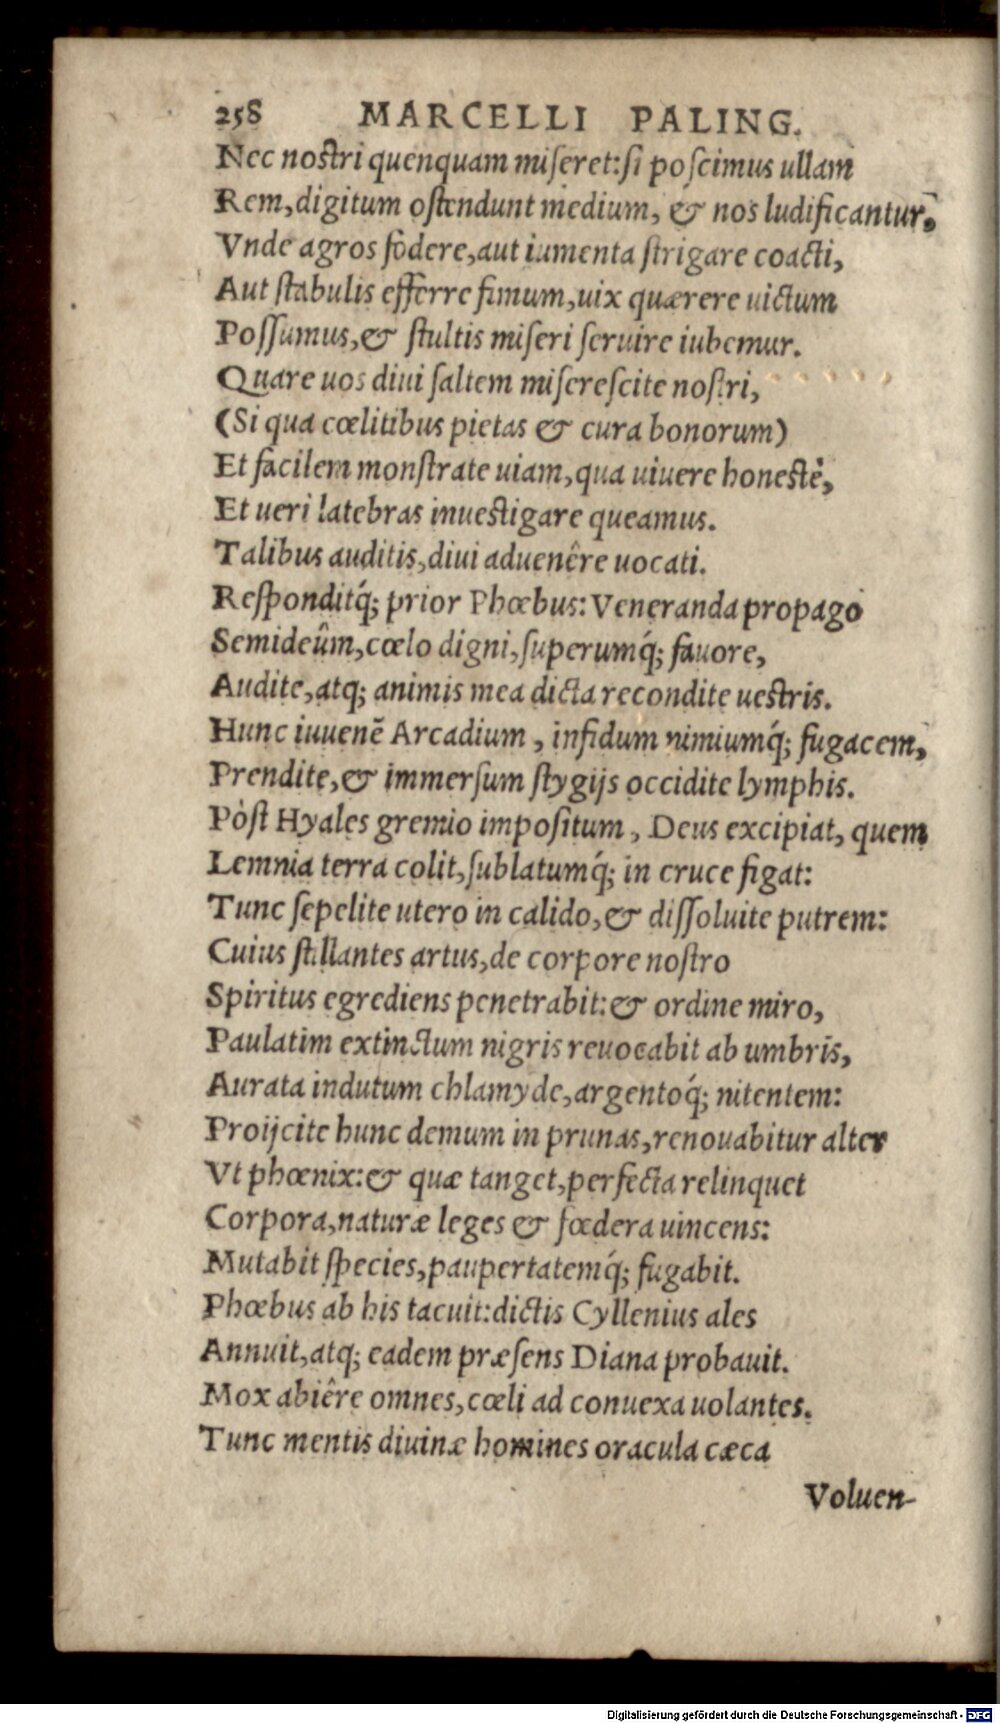 258 MARCELLI PALING.
Nec nostri quenquam miseret:si poscimus ullam
Rem,digitum ostendunt medium, & nos ludificantur.
Vnde agros fodere,aut iumenta strigare coacti,
Aut stabulis efferre fimum,uix quærere uictum
Possumus,& stultis miseri seruire iubemur.
Quare uos diui saltem miserescite nostri,
(Si qua cœlitibus pietas & cura bonorum)
Et facilem monstrate uiam,qua uiuere honestè,
Et ueri latebras inuestigare queamus.
Talibus auditis,diui aduenêre uocati.
Responditq́; prior Phœbus:Veneranda propago
Semideûm,cœlo digni,superumq́; fauore,
Audite,atq; animis mea dicta recondite uestris.
Hunc iuuenē Arcadium, infidum nimiumq́; fugacem,
Prendite,& immersum stygijs occidite lymphis.
Pòst Hyales gremio impositum, Deus excipiat, quem
Lemnia terra colit,sublatumq́; in cruce figat:
Tunc sepelite utero in calido,& dissoluite putrem:
Cuius stillantes artus,de corpore nostro
Spiritus egrediens penetrabit:& ordine miro,
Paulatim extinctum nigris reuocabit ab umbris,
Aurata indutum chlamyde,argentoq́; nitentem:
Proijcite hunc demum in prunas,renouabitur alter
Vt phœnix:& quæ tanget,perfecta relinquet
Corpora,naturæ leges & fœdera uincens:
Mutabit species,paupertatemq́; fugabit.
Phœbus ab his tacuit:dictis Cyllenius ales
Annuit,atq; eadem præsens Diana probauit.
Mox abiêre omnes,cœli ad conuexa uolantes.
Tunc mentis diuinæ homines oracula cæca
Voluen-
Digitalisierung gefördert durch die Deutsche Forschungsgemeinschaft - DFG